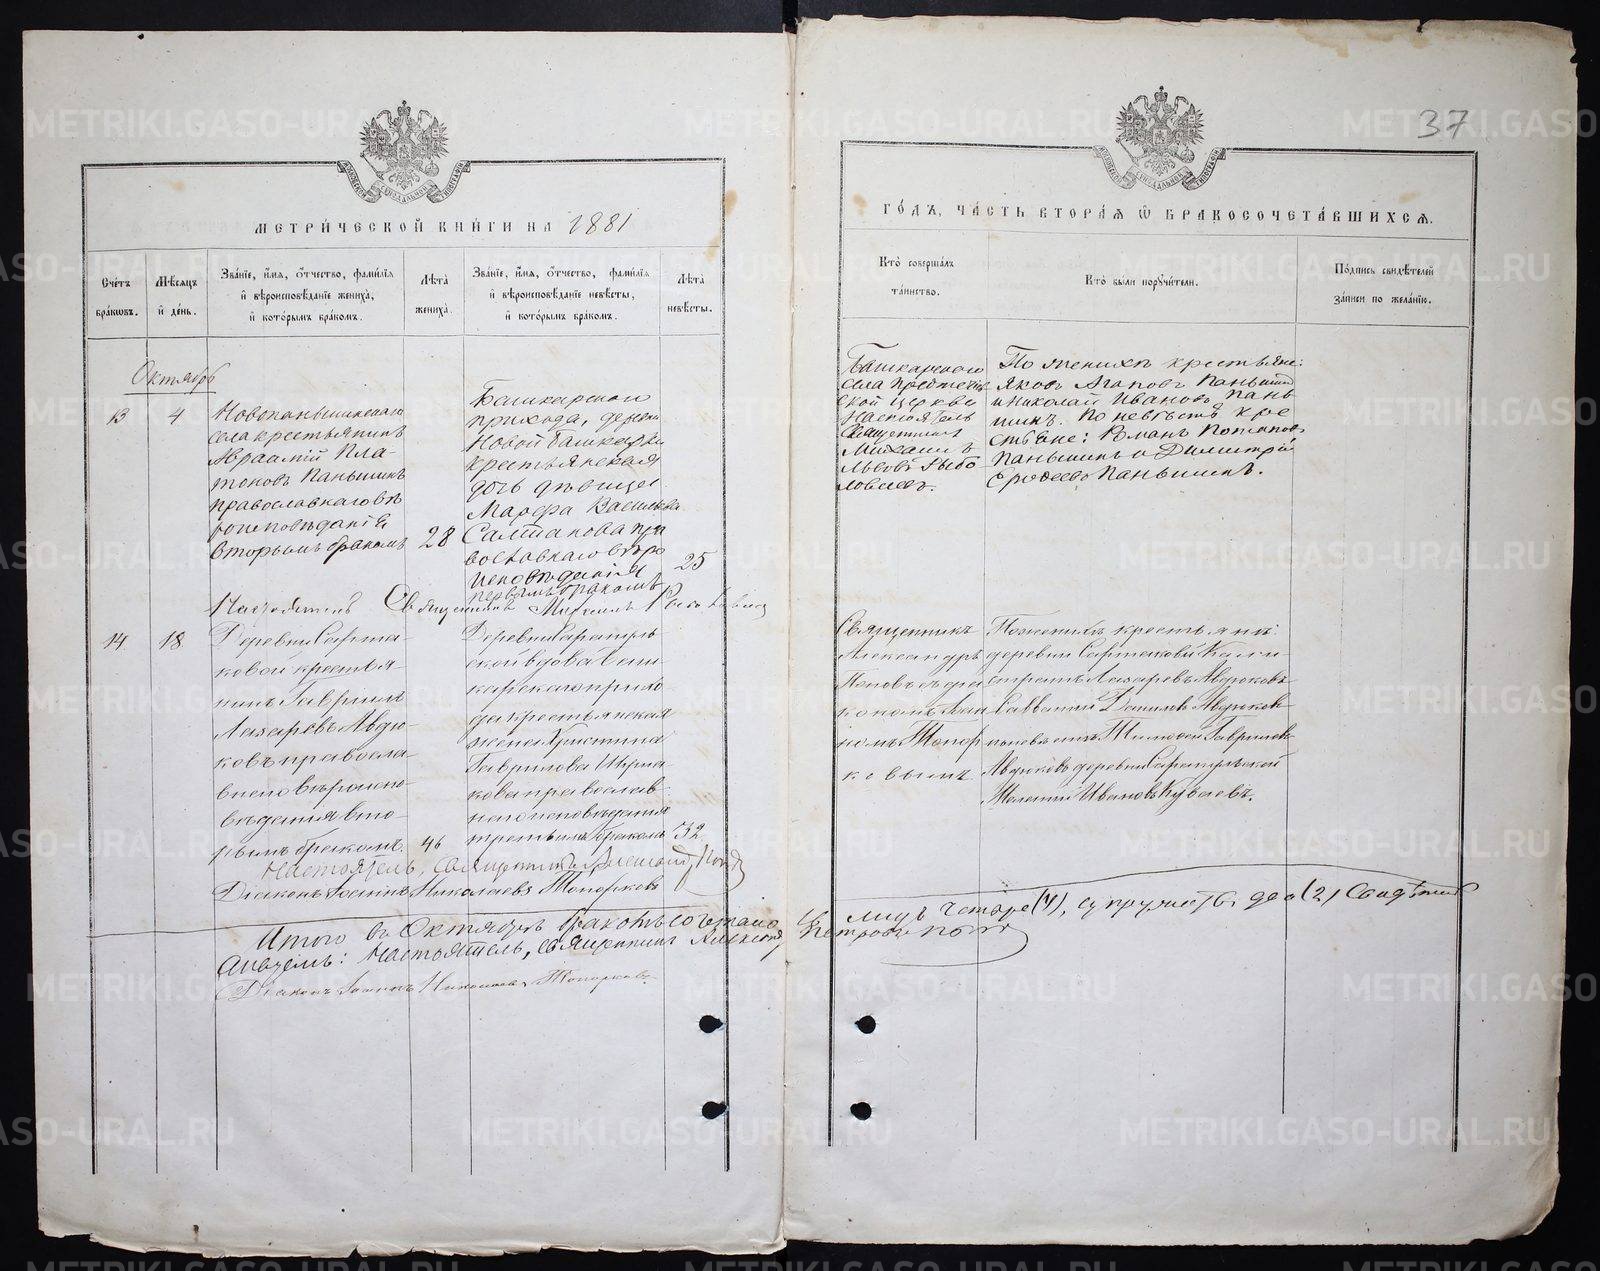 37
МЕТРИ́ЧЕСКОЙ КНИ́ГИ НА 1881
ГО́ДЪ, ЧА́СТЬ ВТОРА́Я Ѿ БРАКОСОЧЕТА́ВШИХСЯ.
Сче́тъ
бра́ковъ.
Мѣ́сяцъ
и҆ де́нь.
Зва́нїе, и҆́мя, ѻ҆́тчество, фами́лїя
и҆ вѣроисповѣ́данїе жениха̀,
и҆ кото́рымъ бра́комъ.
Лѣ́та
жениха̀.
Зва́нїе, и҆́мя, ѻ҆́тчество, фами́лїя
и҆ вѣроисповѣ́данїе невѣ́сты,
и҆ кото́рымъ бра́комъ.
Лѣ́та
невѣ́сты.
Кто̀ соверша́лъ
та́инство.
Кто̀ бы́ли порꙋчи́тели.
По́дпись свидѣ́телей
за́писи по жела́нїю.
Октябрь
13
4
Новопаньшинскаго
села крестьянинъ
Авраамій Пла-
тоновъ Паньшинъ
православнаго вѣ
роисповѣданія
вторымъ бракомъ
28
Башкарскаго
прихода, деревни
Новой Башкарки
крестьянская
дочь дѣвица
Марфа Васильева
Салтанова пра
вославнаго вѣро
исповѣданія
первымъ бракомъ
25
Башкарского
села
ской церкви
Настоятель
Священникъ
Михаилъ
Львовъ Рыбо
ловлевъ.
По женихѣ крестьяне:
Яковъ Агаповъ Паньшин
и Николай Ивановъ Пань
шинъ. По невѣстѣ кре
стьяне: Романъ Потаповъ
Паньшинъ и Димитрій
Паньшинъ.
Настоятель Священникъ Михаилъ Рыболовлев
14
18
Деревни Сарта-
ковой крестья-
нинъ Гавріилъ
Лазаревъ Авдю-
ковъ правосла-
внаго вѣроиспо-
вѣданія вто-
рымъ бракомъ.
46
Деревни Сарапуль
ской вдова
прихо-
да крестьянская
жена Христина
Гаврилова
кова православ-
наго исповѣданія
третьимъ бракомъ
32
Священникъ
Александръ
Поповъ съ діа
кономъ Іоан
номъ Топор
ковымъ
По женихѣ крестьяне:
деревни Сартаковой
Лазаревъ Авдюковъ
Савватій Даниловъ Авдюков
по невѣстѣ Тимофей Гавриловъ
Авдюковъ деревни Сарапульской
Ивановъ Куваевъ.
Настоятель, Священникъ Александръ Поповъ
Діаконъ Іоаннъ Николаевъ Топорковъ
Итого въ Октябрѣ бракомъ сочетано лицъ четыре (4), супружествъ два (2)
Настоятель, священникъ Александръ Петровъ Поповъ
Діаконъ Іоаннъ Николаевъ Топорковъ
METRIKI.GASO-URAL.RU